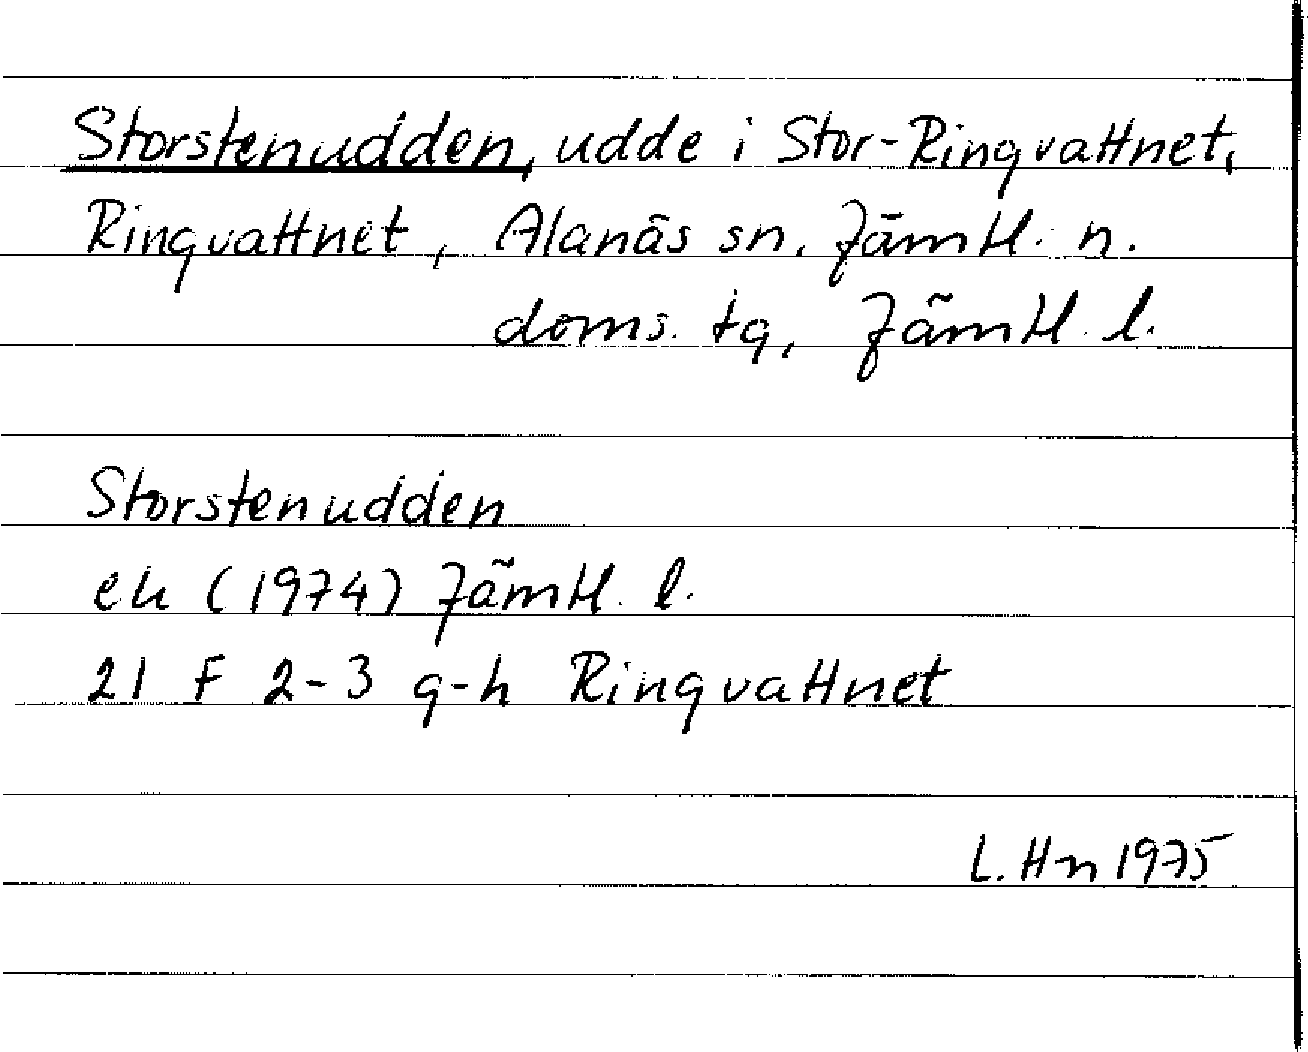 Storstenudden, udde i Stor-Ringvattnet,
Ringvattnet, Alanäs sn, Jämtl. n.
doms. tg, Jämtl. l.
Storstenudden
ek (1974) Jämtl. l.
21 F 2-3 g-h Ringvattnet
L. Hn 1975